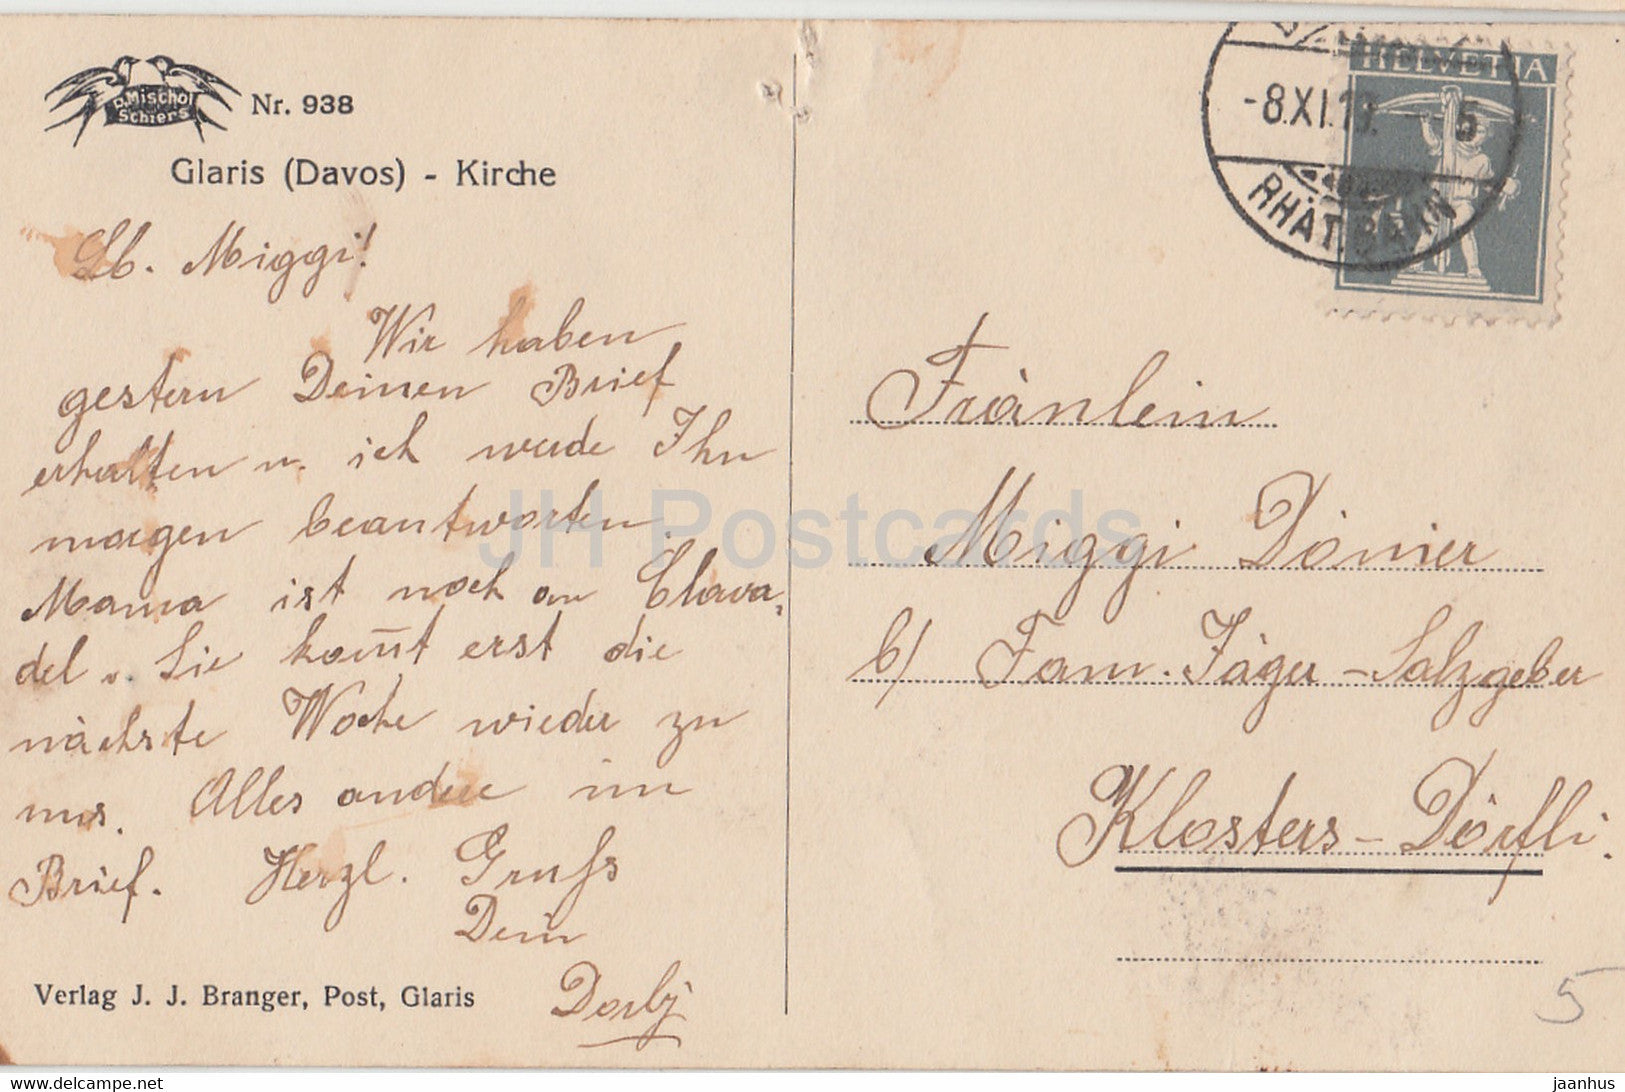 D. Mischol
Schiers
Nr. 938
Glaris (Davos) - Kirche
Lb. Miggi!
Wir haben
gestern Deinen Brief
erhalten u. ich werde Ihn
morgen beantworten.
Mama ist noch an Clava-
del u. Sie kom̄t erst die
nächste Woche wieder zu
uns. Alles andere im
Brief. Herzl. Gruss
Dein
Verlag J. J. Branger, Post, Glaris
HELVETIA
-8.XI.1
5
RHÄT. BAHN
Fräulein
Miggi Dönier
b/ Fam. Jäger-Salzgeber
Klosters-Dörfli.
5
JH Postcards
www.delcampe.net
jaanhus